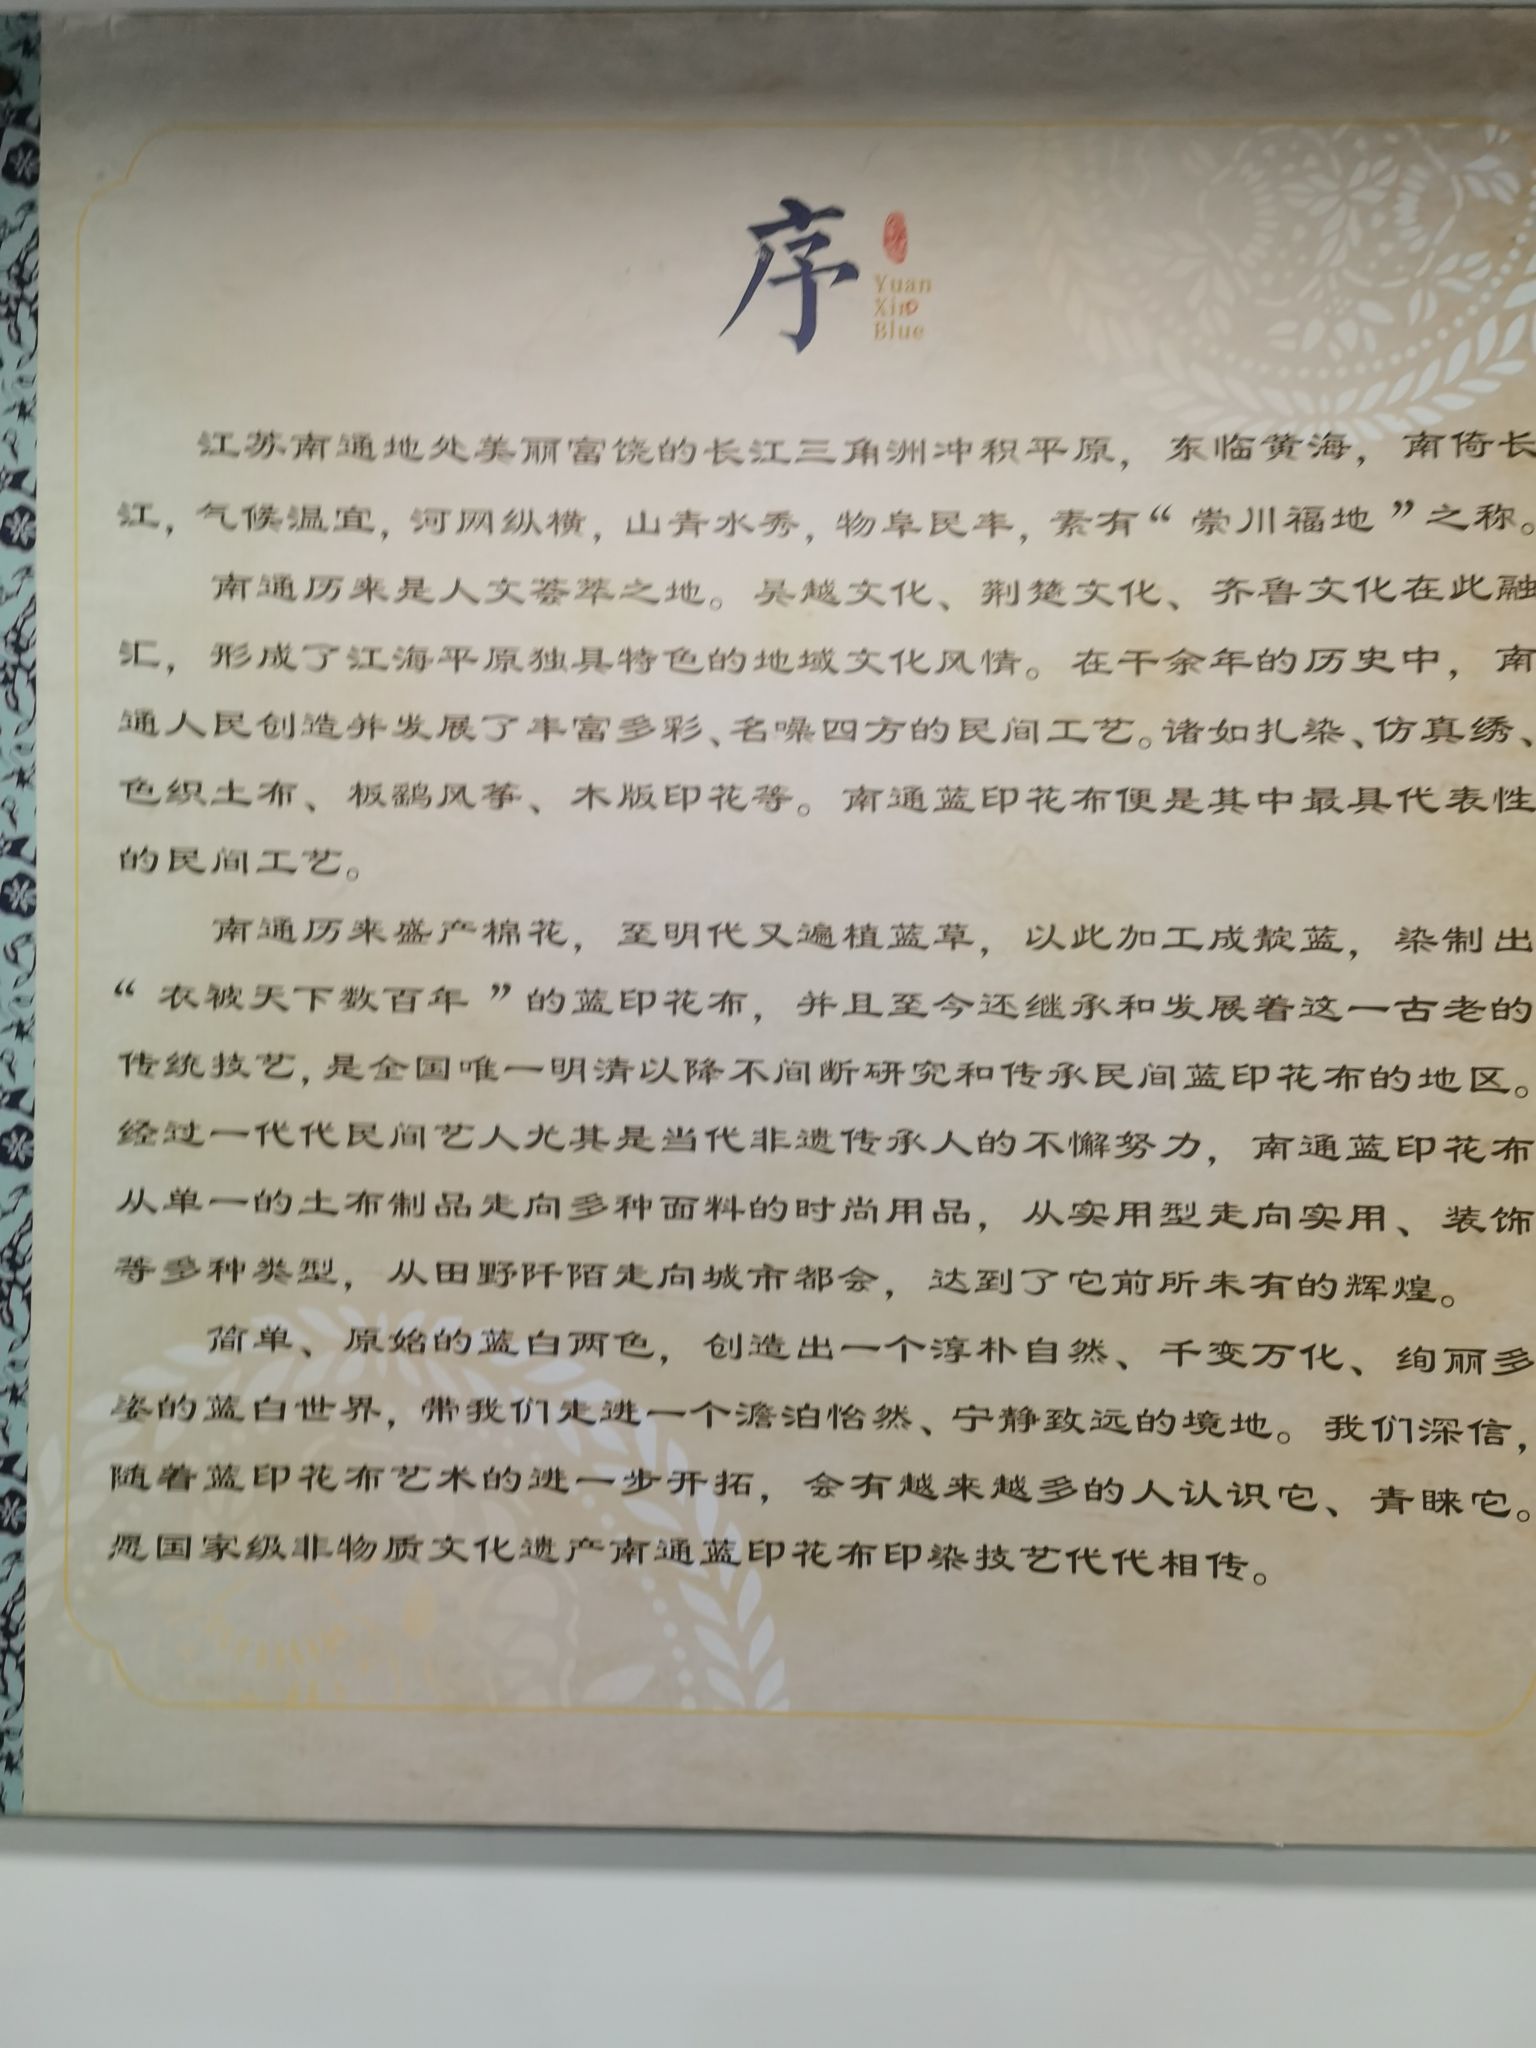 序
Yuan
Xin
Blue
江苏南通地处美丽富饶的长江三角洲冲积平原，东临黄海，南倚长
江，气候温宜，河网纵横，山青水秀，物阜民丰，素有“崇川福地”之称。
南通历来是人文荟萃之地。吴越文化、荆楚文化、齐鲁文化在此融
汇，形成了江海平原独具特色的地域文化风情。在千余年的历史中，南
通人民创造并发展了丰富多彩、名噪四方的民间工艺。诸如扎染、仿真绣、
色织土布、板鹞风筝、木版印花等。南通蓝印花布便是其中最具代表性
的民间工艺。
南通历来盛产棉花，至明代又遍植蓝草，以此加工成靛蓝，染制出
“衣被天下数百年”的蓝印花布，并且至今还继承和发展着这一古老的
传统技艺，是全国唯一明清以降不间断研究和传承民间蓝印花布的地区。
经过一代代民间艺人尤其是当代非遗传承人的不懈努力，南通蓝印花布
从单一的土布制品走向多种面料的时尚用品，从实用型走向实用、装饰
等多种类型，从田野阡陌走向城市都会，达到了它前所未有的辉煌。
简单、原始的蓝白两色，创造出一个淳朴自然、千变万化、绚丽多
姿的蓝白世界，带我们走进一个澹泊怡然、宁静致远的境地。我们深信，
随着蓝印花布艺术的进一步开拓，会有越来越多的人认识它、青睐它。
愿国家级非物质文化遗产南通蓝印花布印染技艺代代相传。